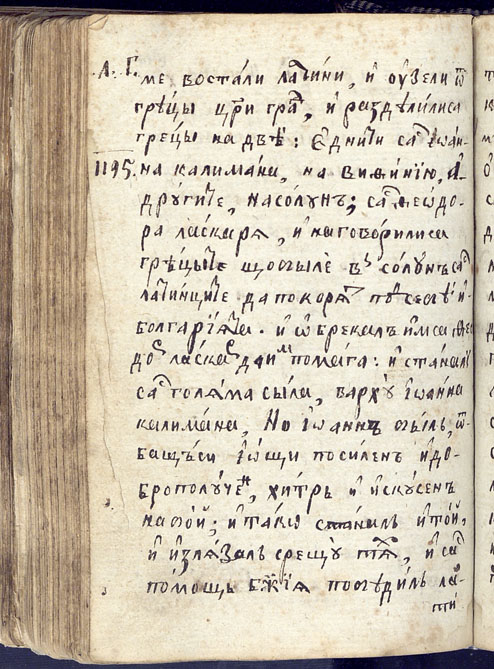 .Л. Г. ме востали латини, и оузели ѿ
грѣцы цри гра, и раздѣлилиса
грецы на двѣ: Едните са іѡан-
1195. на калимана, на виѳинїю, а
другите, на солунъ; са ѳеѡдо-
ра ласкаря, и наговорилиса
грѣцыте що былѣ въ солунъ са
латинците да покорят по себѣ и
болгаріята. и ѡбрекалъ им са ѳео
доръ ласкаръ да им помага: и станалъ
са голяма сыла, варху іѡанна
калимана, Но іѡаннъ былъ, ѿ
баща си іѡщи посиленъ и до-
брополученъ, хитръ и искусенъ
на бой; и такѡ станилъ и той,
и излязалъ срещу тях, и са
помощь бжїя победилъ ла-
ти